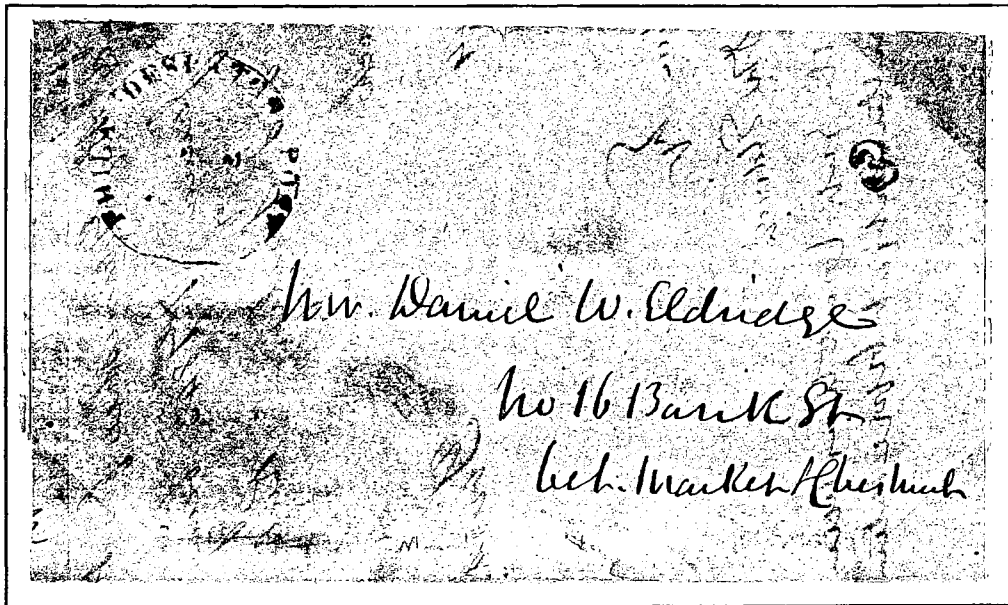 PHILA DESPATCH POST
3
Mr. Daniel W. Eldridge
No 16 Bank St
bet. Market & Chesnut